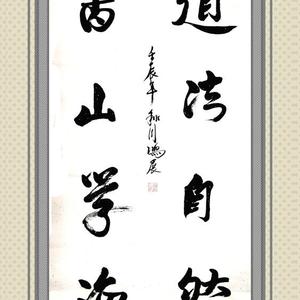 道法自然
書山学海
壬辰年秋月